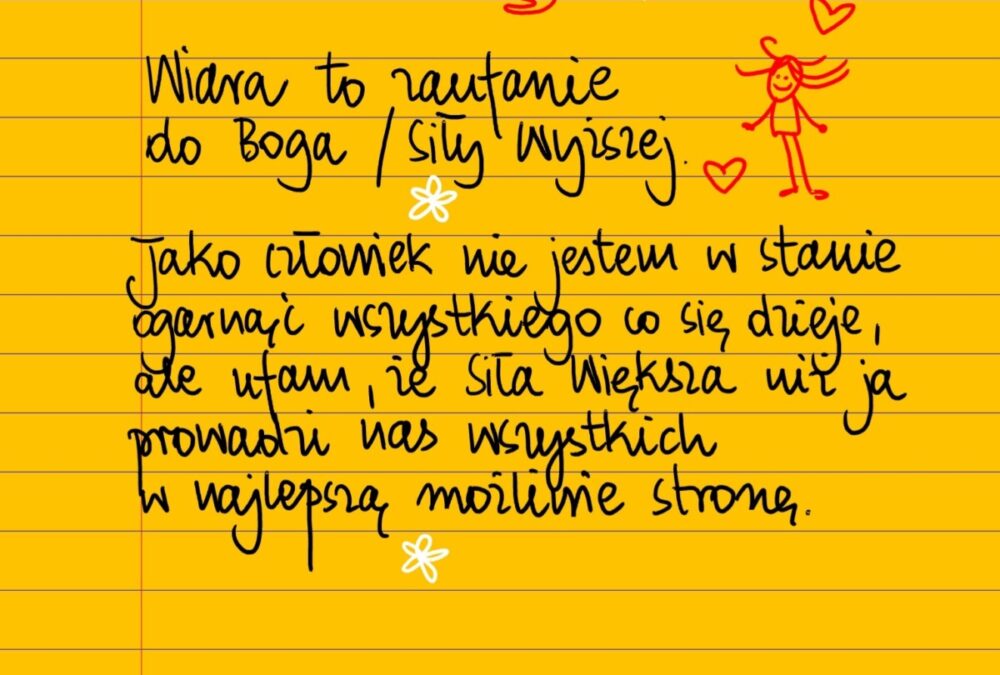 Wiara to zaufanie
do Boga / Siły Wyższej.
Jako człowiek nie jestem w stanie
ogarnąć wszystkiego co się dzieje,
ale ufam, że Siła Większa niż ja
prowadzi nas wszystkich
w najlepszą możliwie stronę.